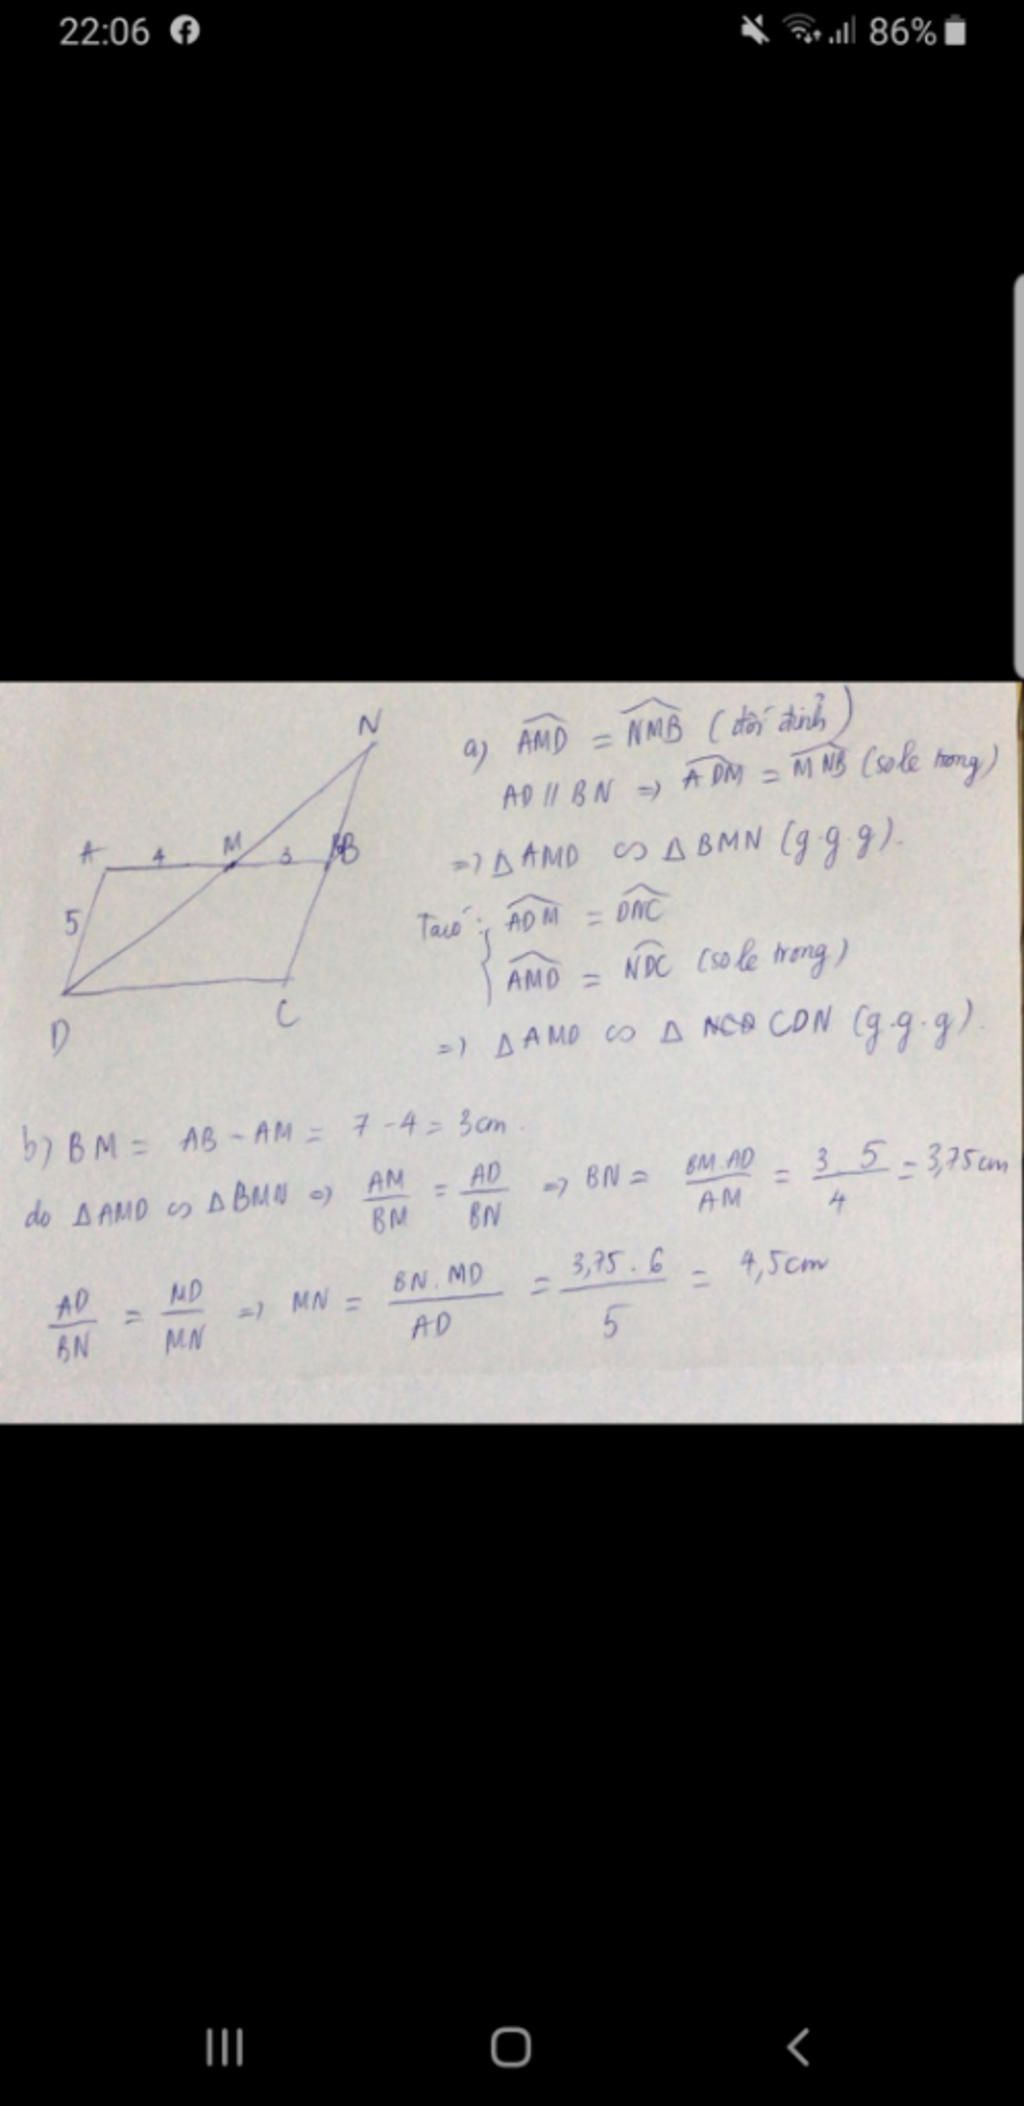 22:06 86%
N
a) AMD = NMB (đối đỉnh)
AD // BN => ADM = MNB (sole trong)
A 4 M 3 B
=> Δ AMD ∽ Δ BMN (g.g.g).
5
Ta có: { ADM = DNC
AMD = NDC (sole trong)
D C
=> Δ AMD ∽ Δ CDN (g.g.g).
b) BM = AB - AM = 7 - 4 = 3cm.
do ΔAMD ∽ ΔBMN => AM/BM = AD/BN => BN = BM.AD/AM = 3.5/4 = 3,75cm
AD/BN = MD/MN => MN = BN.MD/AD = 3,75.6/5 = 4,5cm